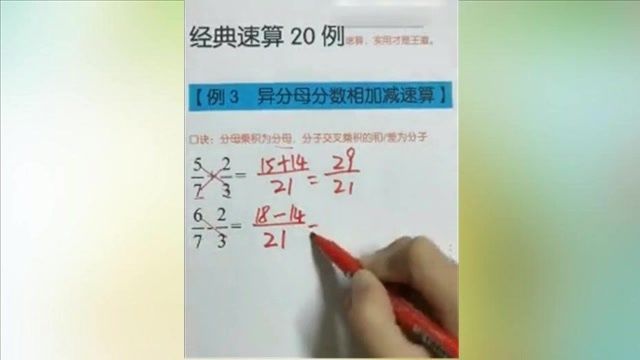 经典速算 20 例 速算，实用才是王道。
【例 3 异分母分数相加减速算】
口诀：分母乘积为分母，分子交叉乘积的和/差为分子
5/7 + 2/3 = 15+14/21 = 29/21
6/7 - 2/3 = 18-14/21 =